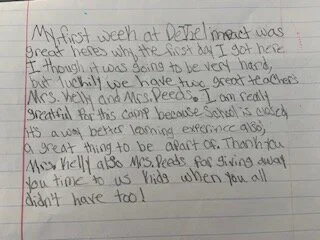 My first week at DeTiel impact was
great heres why the first day I got here
I though it was going to be very hard,
but luckily we have two great teachers
Mrs. Kelly and Mrs. Deeds. I am really
greatful for this camp because School is closed,
its a way better learning experince also,
a great thing to be apart of. Thank you
Mrs. Kelly also Mrs. Deeds for giving away
you time to us kids when you all
didn't have too!